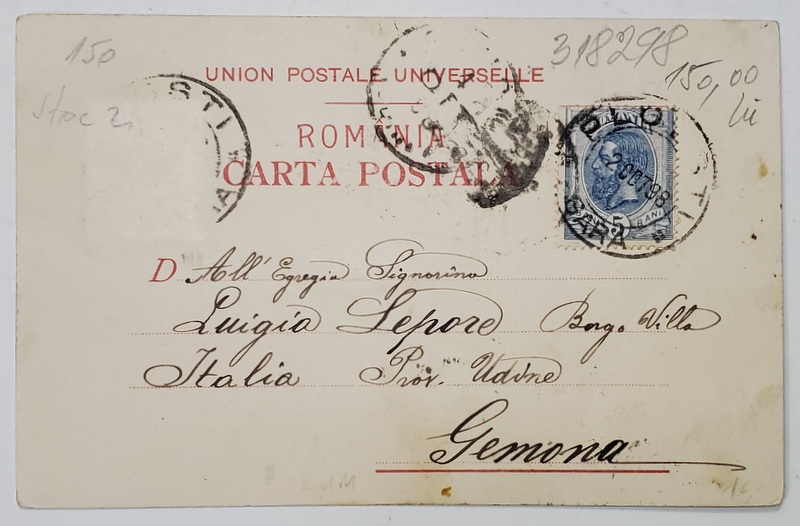 150
318298
UNION POSTALE UNIVERSELLE
150,00
lei
Stoc
STI
ROMÂNIA
CARTA POSTALA
PLOESTI
2 OCT 98
GARA
5
BANI
D All' Egregia Signorina
Luigia Lepore Borgo Villa
Italia Prov. Udine
Gemona